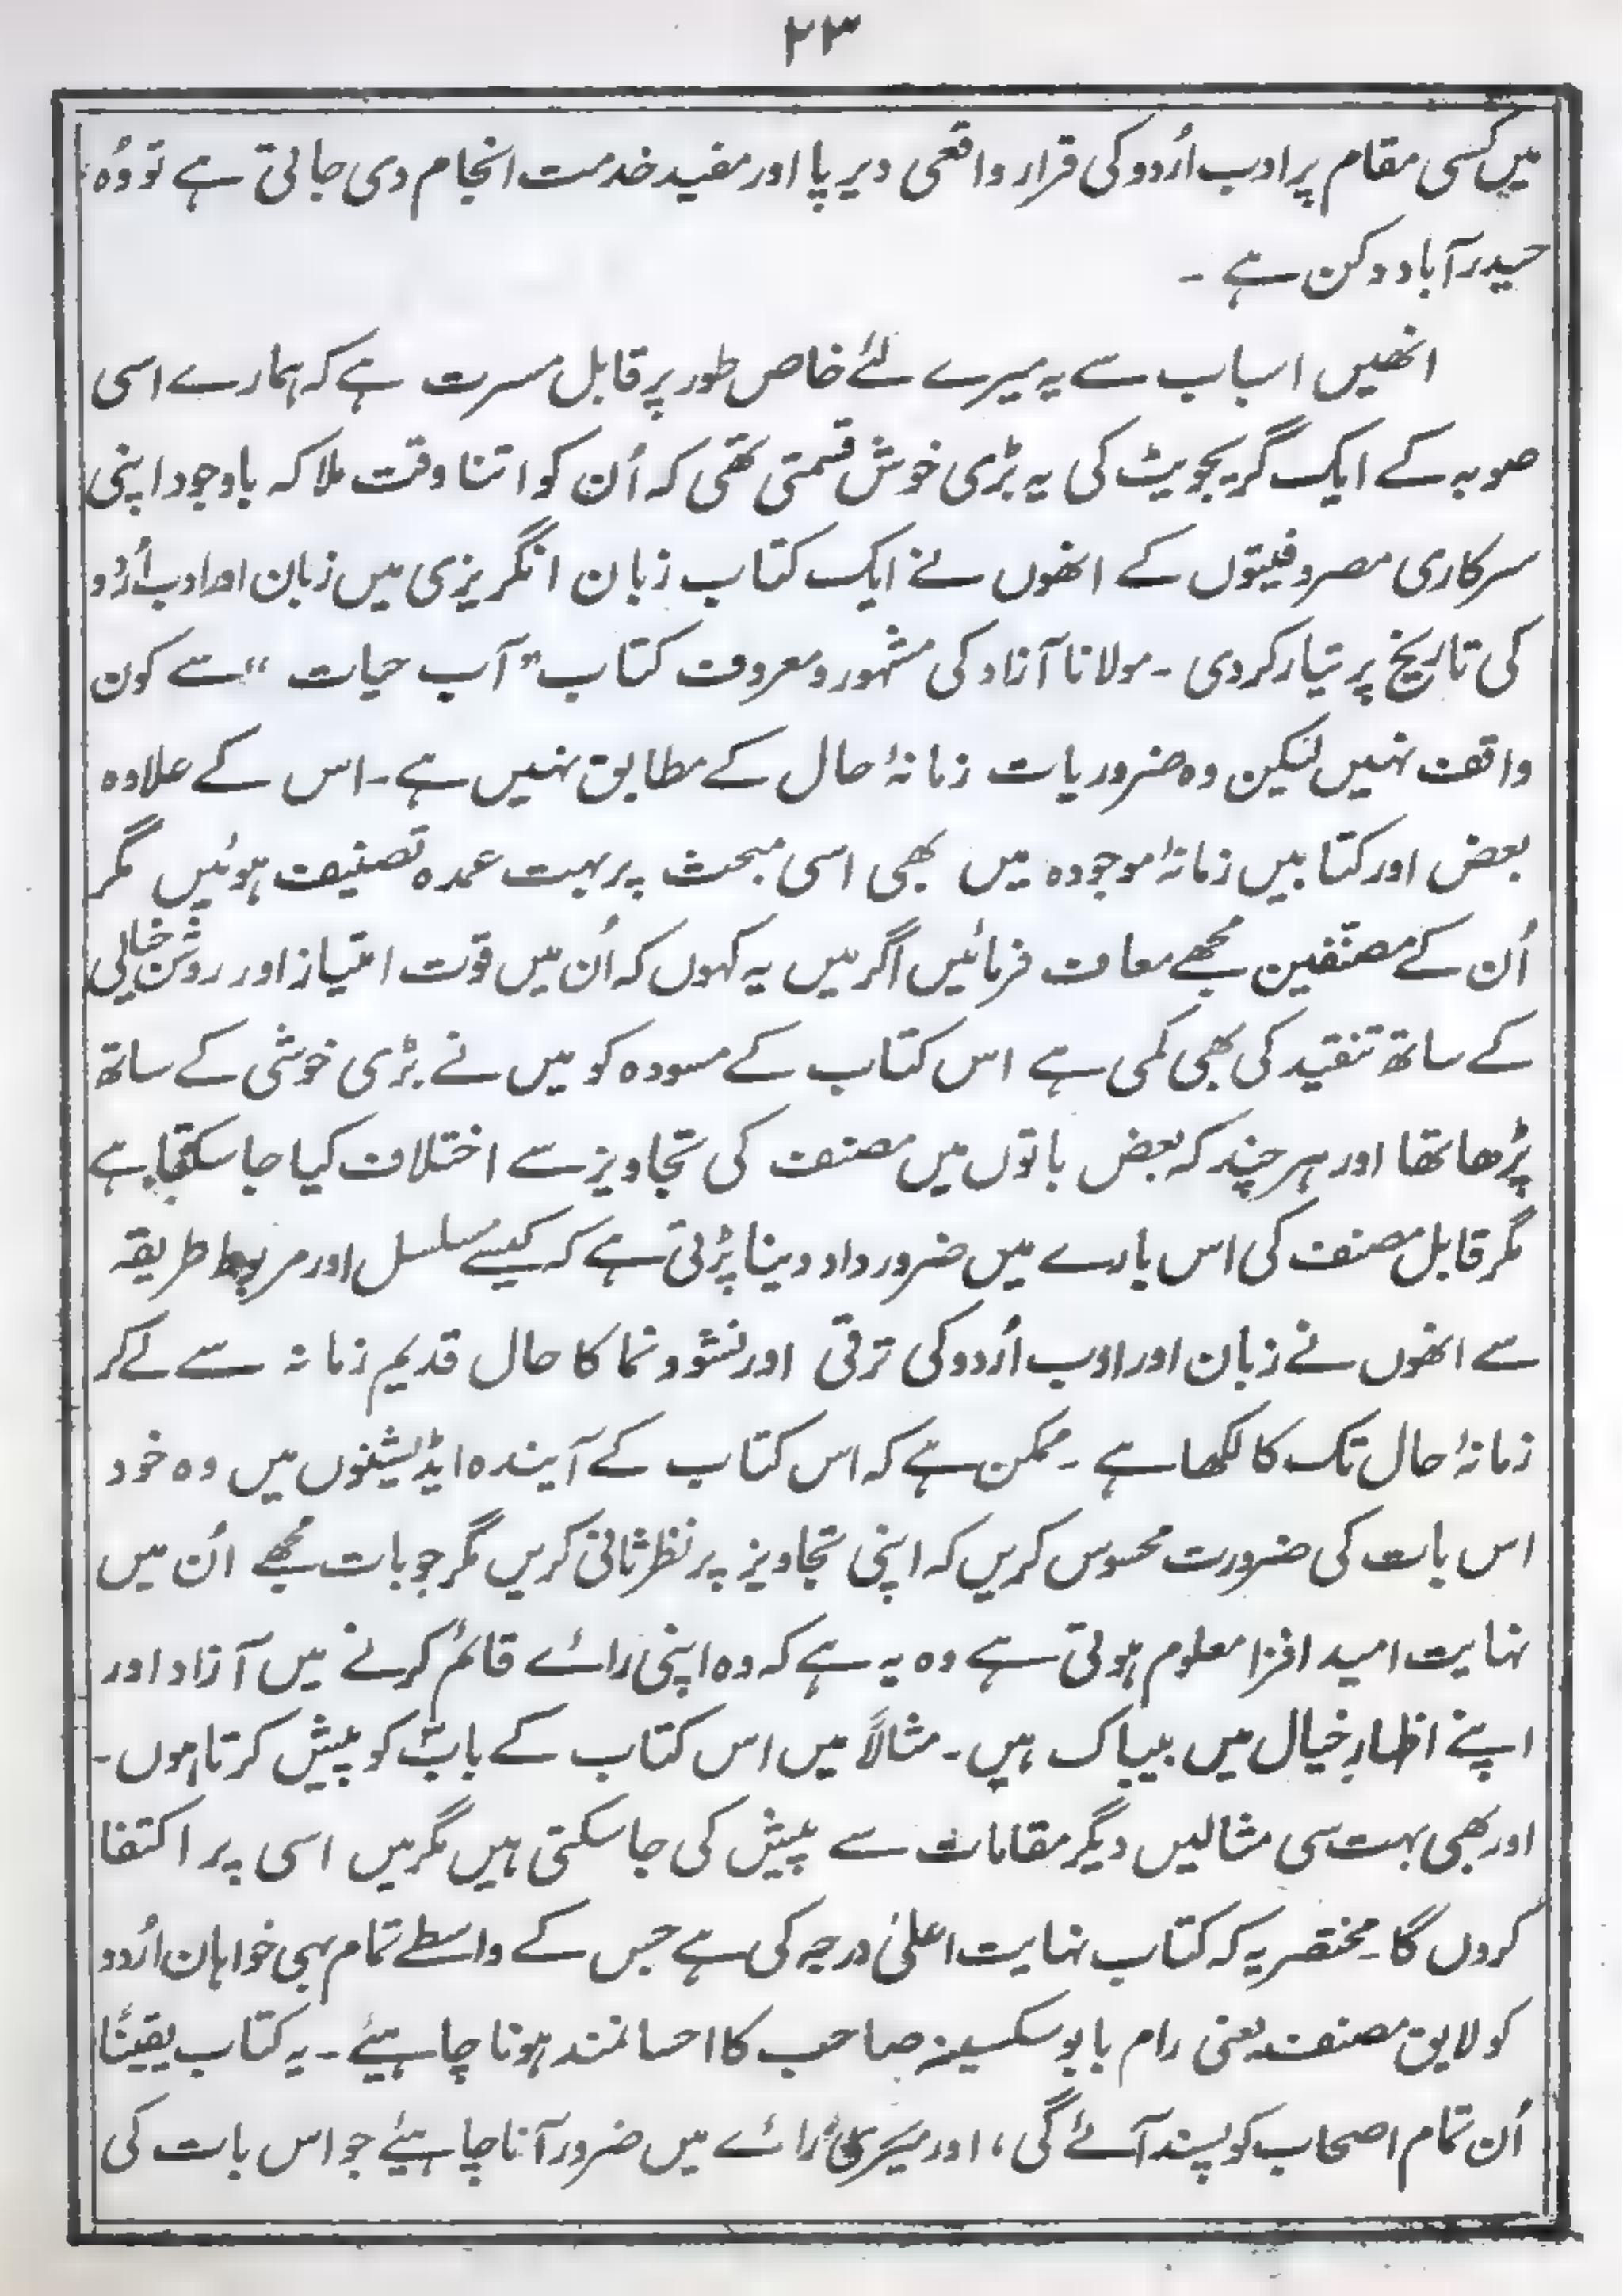 ۲۳
میں کسی مقام پر ادب اُردو کی قرار واقعی دیرپا اور مفید خدمت انجام دی جاتی ہے تو وُہ
حیدرآباد دکن ہے ۔
انھیں اسباب سے یہ میرے لئے خاص طور پر قابل مسرت ہے کہ ہمارے اسی
صوبہ کے ایک گریجویٹ کی یہ بڑی خوش قسمتی تھی کہ اُن کو اتنا وقت ملا کہ باوجود اپنی
سرکاری مصروفیتوں کے انھوں نے ایک کتاب زبان انگریزی میں زبان اور ادب اُردو
کی تاریخ پر تیار کردی ۔ مولانا آزاد کی مشہور و معروف کتاب "آب حیات" سے کون
واقف نہیں لیکن وہ ضروریات زمانۂ حال کے مطابق نہیں ہے ۔ اس کے علاوہ
بعض اور کتابیں زمانۂ موجودہ میں بھی اسی مبحث پر بہت عمدہ تصنیف ہوئیں مگر
اُن کے مصنّفین مجھے معاف فرمائیں اگر میں یہ کہوں کہ اُن میں قوّت امتیاز اور روشن خیالی
کے ساتھ تنقید کی بھی کمی ہے اس کتاب کے مسودہ کو میں نے بڑی خوشی کے ساتھ
پڑھا تھا اور ہر چند کہ بعض باتوں میں مصنف کی تجاویز سے اختلاف کیا جا سکتا ہے
مگر قابل مصنف کی اس بارے میں ضرور داد دینا پڑتی ہے کہ کیسے مسلسل اور مربوط طریقہ
سے انھوں نے زبان اور ادب اُردو کی ترقی اور نشوونما کا حال قدیم زمانہ سے لے کر
زمانۂ حال تک کا لکھا ہے ۔ ممکن ہے کہ اس کتاب کے آیندہ ایڈیشنوں میں وہ خود
اس بات کی ضرورت محسوس کریں کہ اپنی تجاویز پر نظر ثانی کریں مگر جو بات مجھے اُن میں
نہایت امید افزا معلوم ہوتی ہے وہ یہ ہے کہ وہ اپنی رائے قائم کرنے میں آزاد اور
اپنے اظہارِ خیال میں بیباک ہیں ۔ مثلاً میں اس کتاب کے باب کو پیش کرتا ہوں ۔
اور بھی بہت سی مثالیں دیگر مقامات سے پیش کی جا سکتی ہیں مگر میں اسی پر اکتفا
کروں گا ۔ مختصر یہ کہ کتاب نہایت اعلیٰ درجہ کی ہے جس کے واسطے تمام بہی خواہان اُردو
کو لایق مصنف یعنی رام بابو سکسینہ صاحب کا احسانمند ہونا چاہیئے ۔ یہ کتاب یقیناً
اُن تمام اصحاب کو پسند آئے گی ، اور میری رائے میں ضرور آنا چاہیئے جو اس بات کی